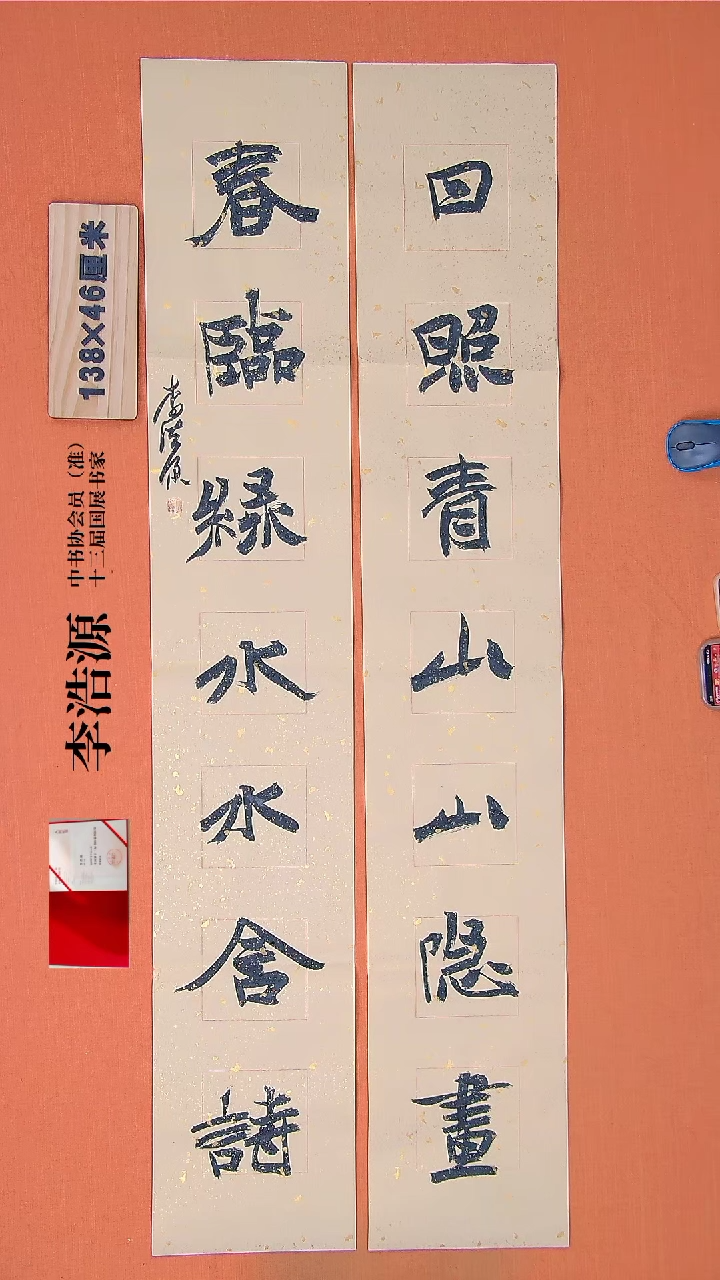 日照青山山隐畫
春臨緑水水含詩
李浩源
138×46厘米
中书协会员（准）
十三届国展书家
李浩源